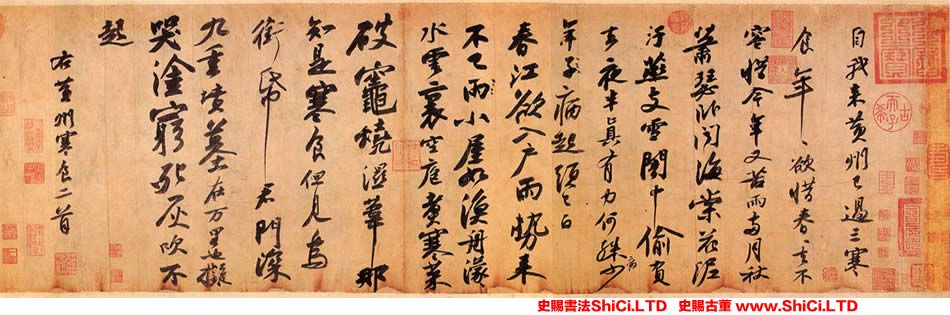 自我來黃州已過三寒
食年〻欲惜春〻去不
容惜今年又苦雨兩月秋
蕭瑟卧聞海棠花泥
汙燕支雪闇中偷負
去夜半真有力何殊病少
年子病起頭已白
春江欲入户雨勢來
不已雨小屋如漁舟濛〻
水雲裏空庖煮寒菜
破竈燒濕葦那
知是寒食但見烏
銜帋君門深
九重墳墓在万里也擬
哭塗窮死灰吹不
起
右黃州寒食二首
古希天子
史賜書法ShiCi.LTD 史賜古董 www.ShiCi.LTD